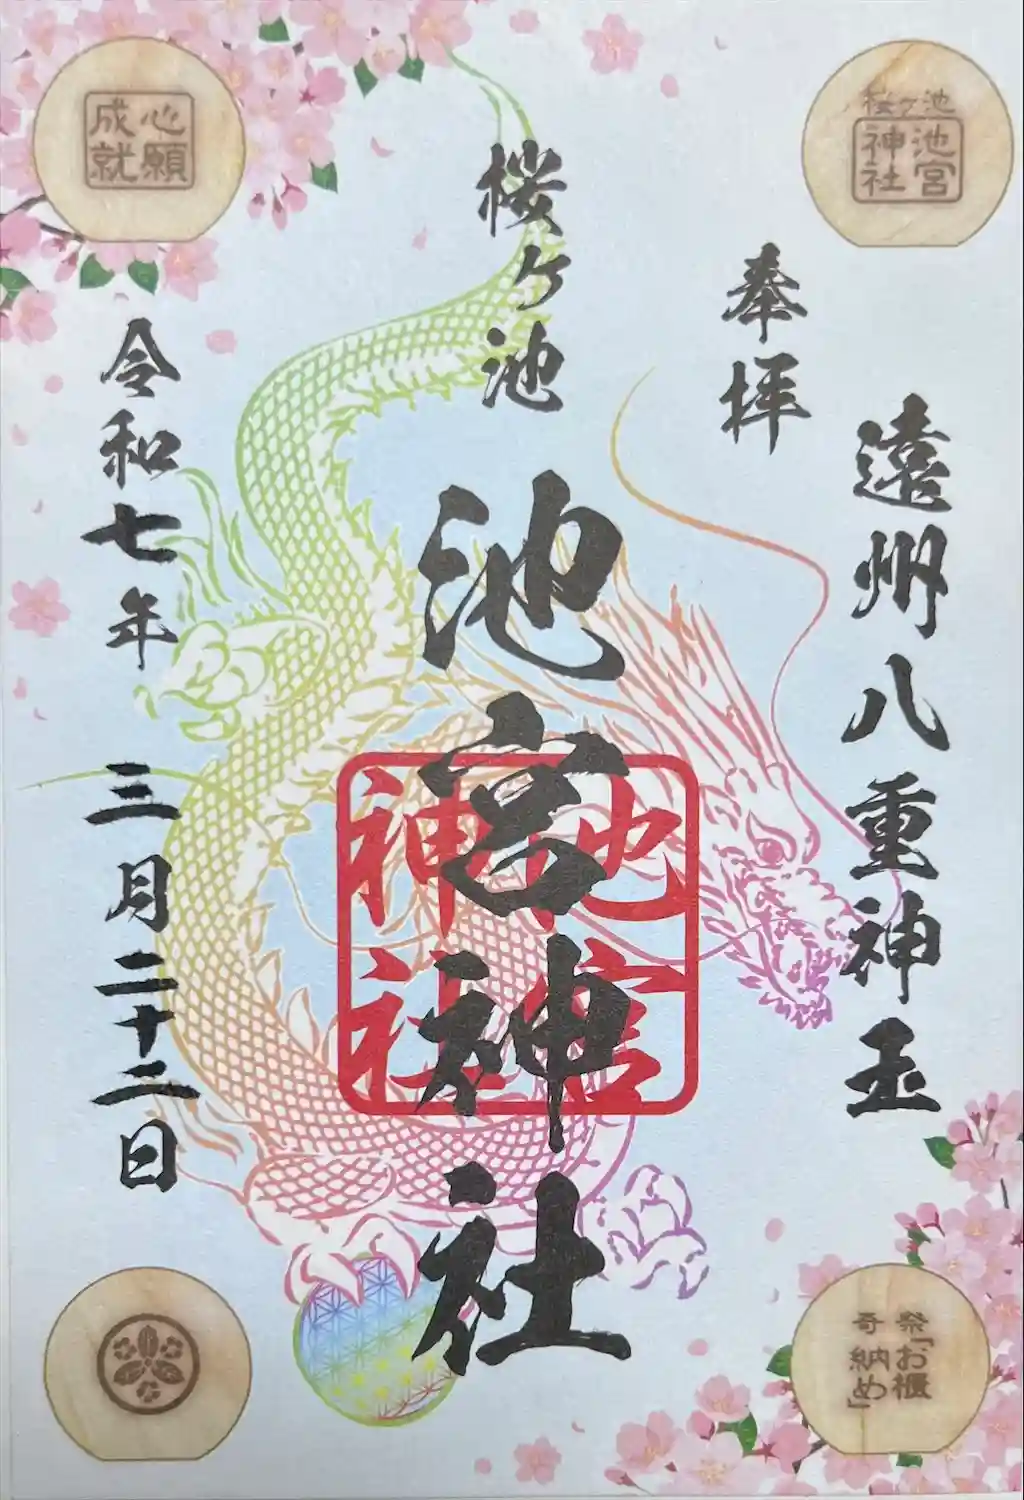 桜ヶ池
池宮
神社
心願
成就
遠州八重神玉
奉拝
桜ヶ池
池宮神社
池宮
神社
令和七年 三月二十二日
奇祭
「お櫃
納め」